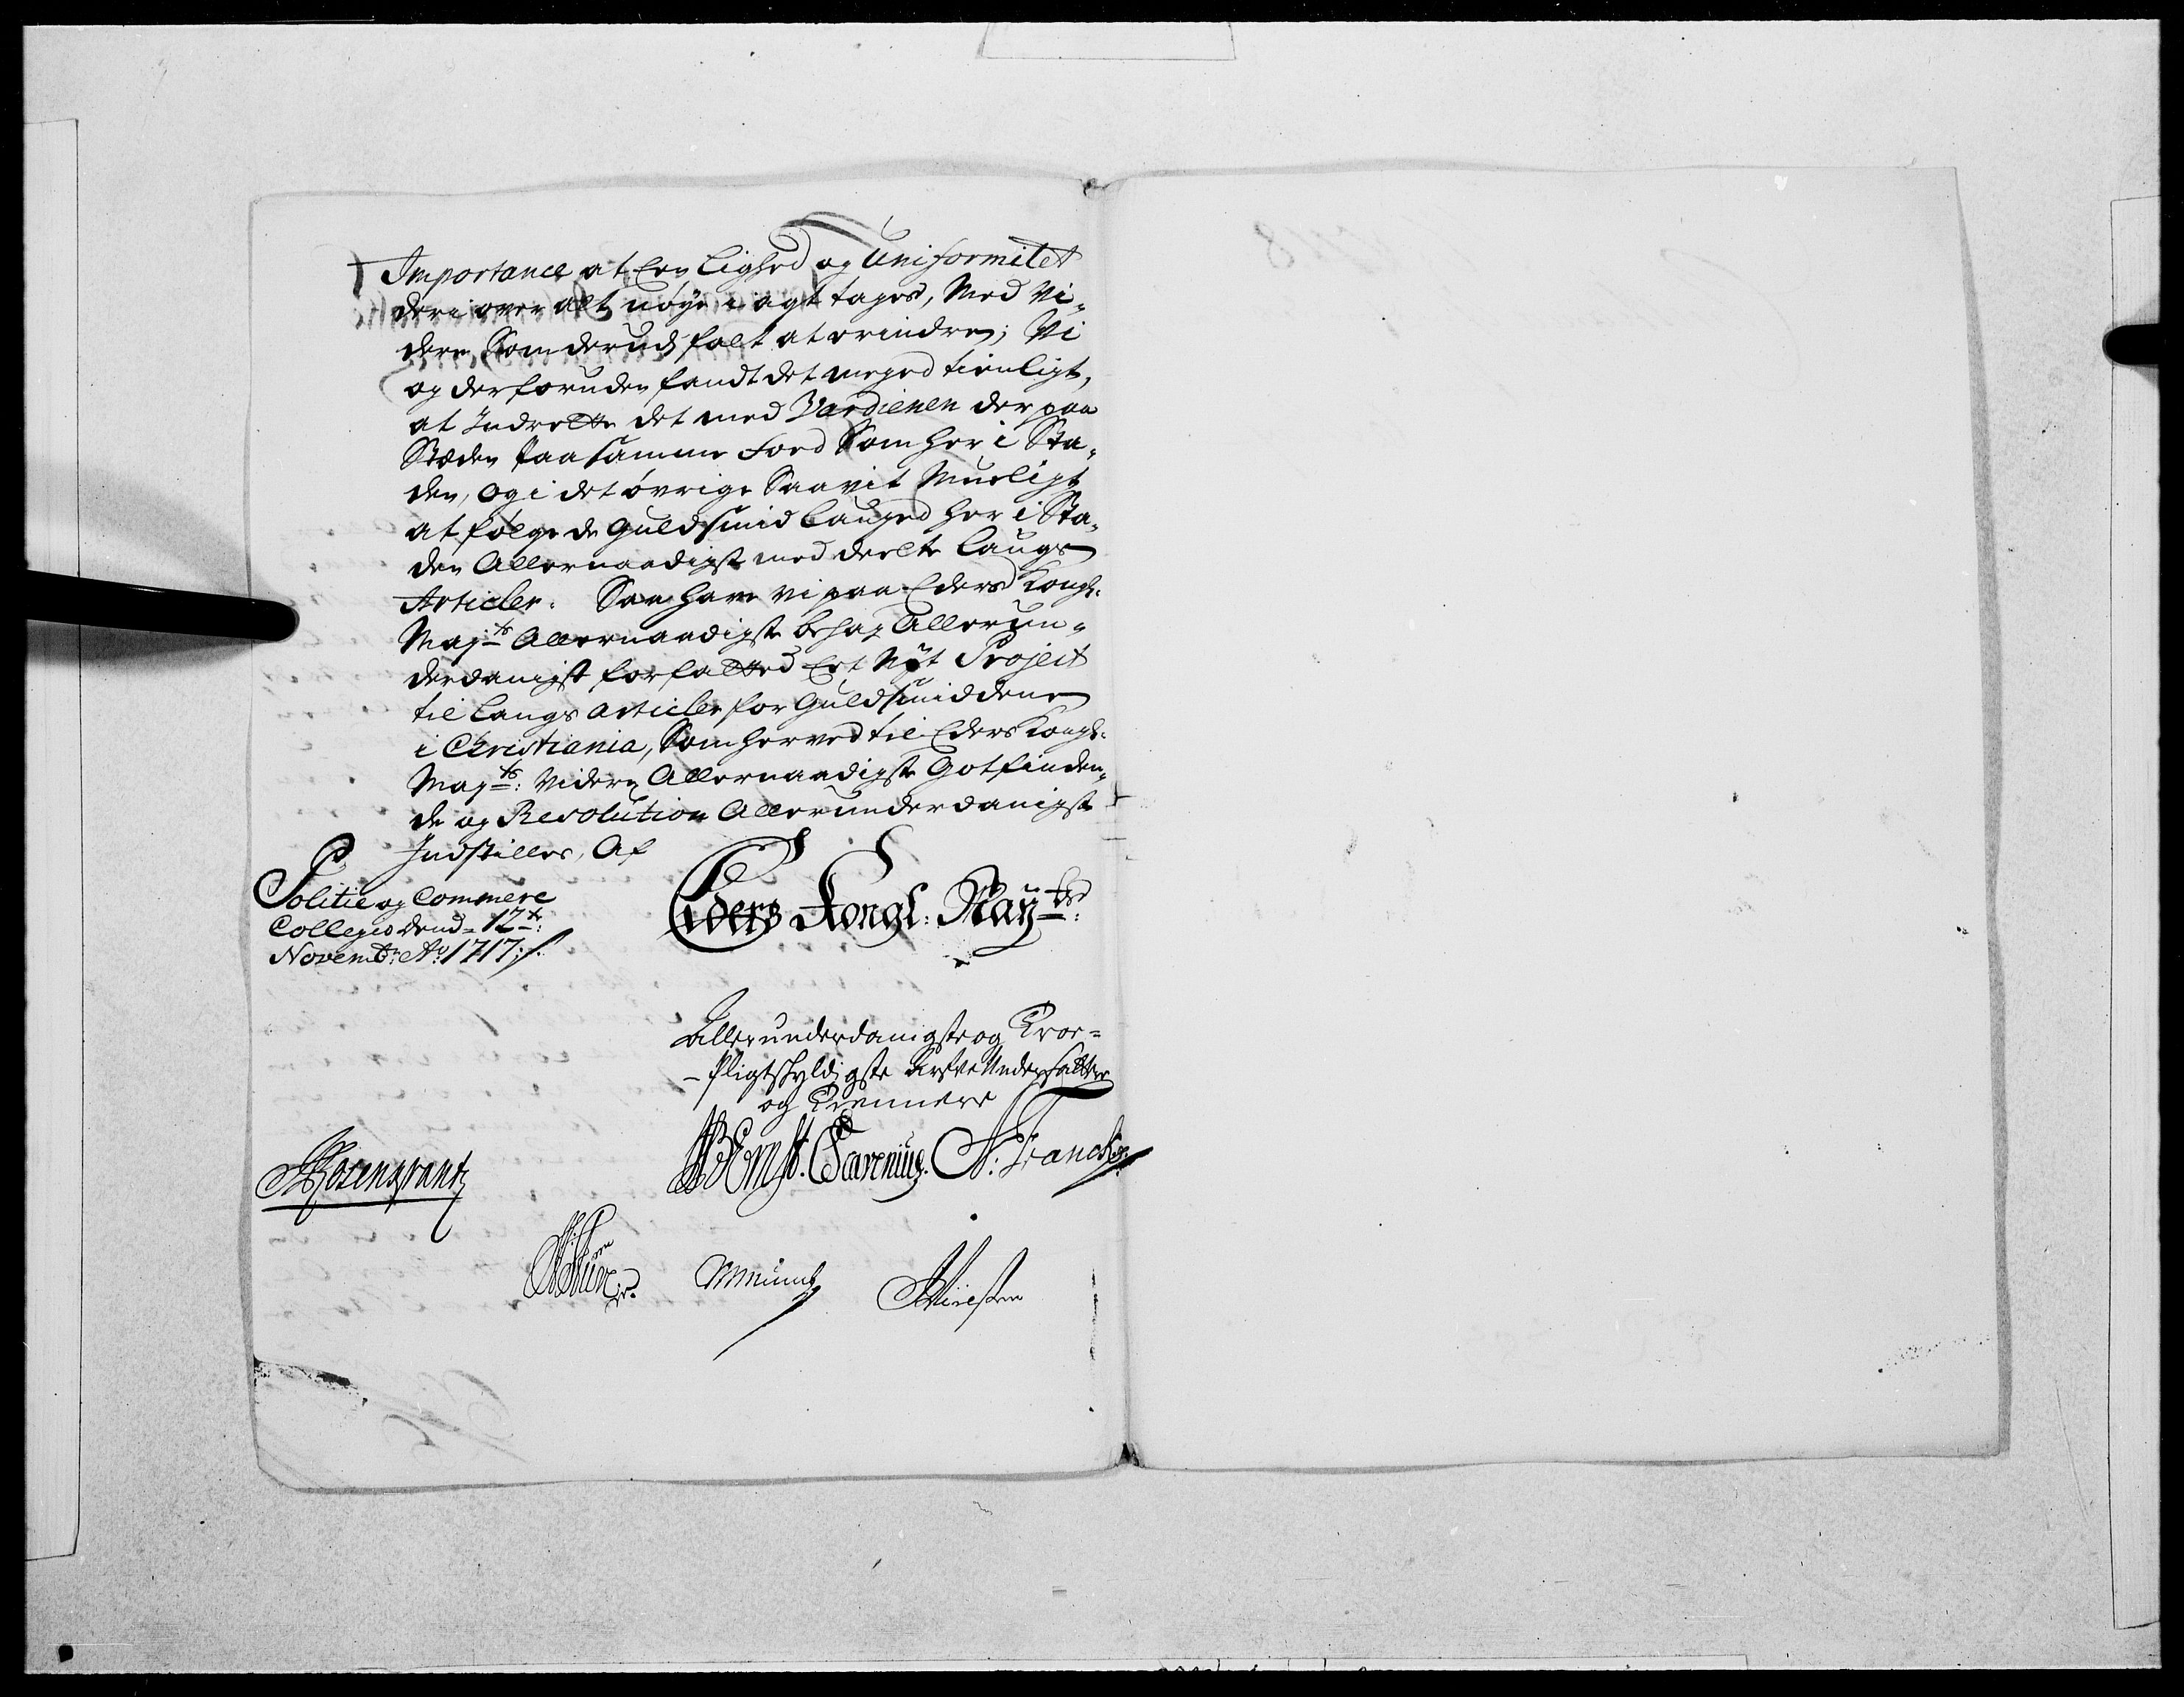 Importance at een Lighed og Uniformitet
deri over alt nøye i agt tages, Med Vi-
dere Som derudj falt at erindre; Vi
og der foruden fandt det meged tienligt,
at Indrette det med Vardienen der paa
Stæden paa samme Foed Som her i Sta-
den, og i det øvrige Saavit Mueligt
at følge de Guldsmid Lauged her i Sta-
den Allernaadigst meddeelte Laugs
Articler. Saa have vi paa Eders Kongl:
Maj:ts Allernaadigste behag Allerun-
derdanigst forfatted Et Nyt Project
til Laugs Articler for Guldsmiddene
i Christiania, Som herved til Eders Kongl:
Maj:ts Videre Allernaadigste Gotfinden-
de og Resolution Allerunderdanigst
Indstilles, Af
Politie og Commerc
Collegio dend 12te:
Novembr: Ao: 1717:/.
Eders Kongl: May:ts
Allerunderdanigste og Troe-
-Pligtskyldigste Arfve Undersatter
og Tiennere
Rosenkrantz
BErnst. Scavenius. Franck